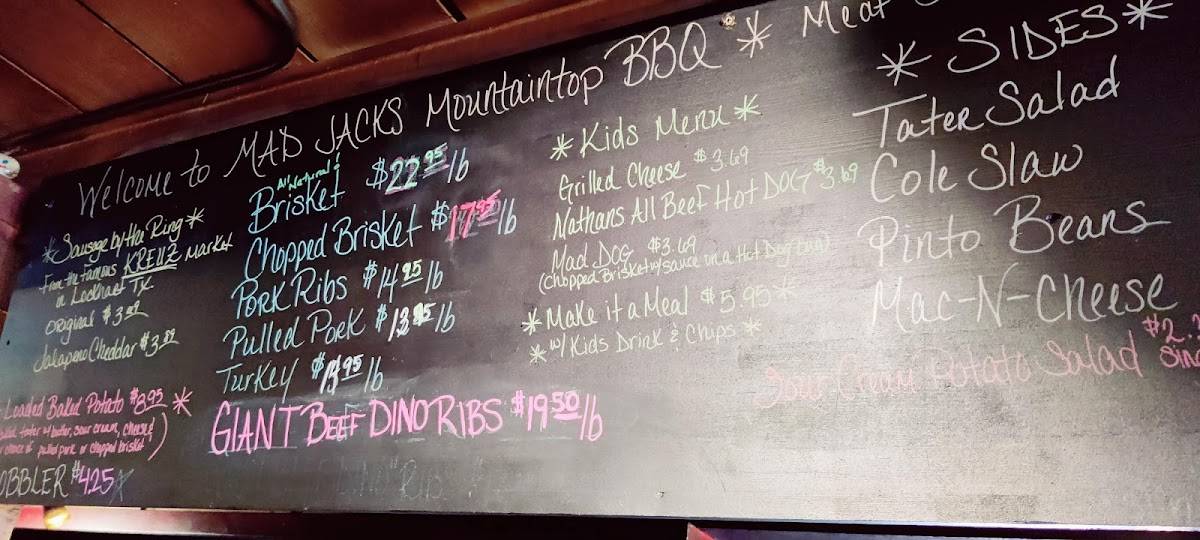 Welcome to MAD JACKS Mountaintop BBQ * Meat
*Sausage by the Ring*
From the famous KREUZ Market
in Lockhart TX.
Original $3.89
Jalapeno Cheddar $3.89
Loaded Baked Potato $8.95 *
tater w/ butter, sour cream, cheese &
choice of pulled pork or chopped brisket)
OBBLER $4.25
All Natural &
Brisket $22.95 lb
Chopped Brisket $17.95 lb
Pork Ribs $14.95 lb
Pulled Pork $13.95 lb
Turkey $14.95 lb
GIANT BEEF DINO RIBS $19.50/lb
*Kids Menu*
Grilled Cheese $3.69
Nathans All Beef Hot DOG $3.69
Mad DOG $3.69
(Chopped Brisket w/ sauce in a Hot Dog bun)
*Make it a Meal $5.95*
*w/ Kids Drink & Chips*
*SIDES*
Tater Salad
Cole Slaw
Pinto Beans
Mac-N-Cheese
Sour Cream Potato Salad $2.